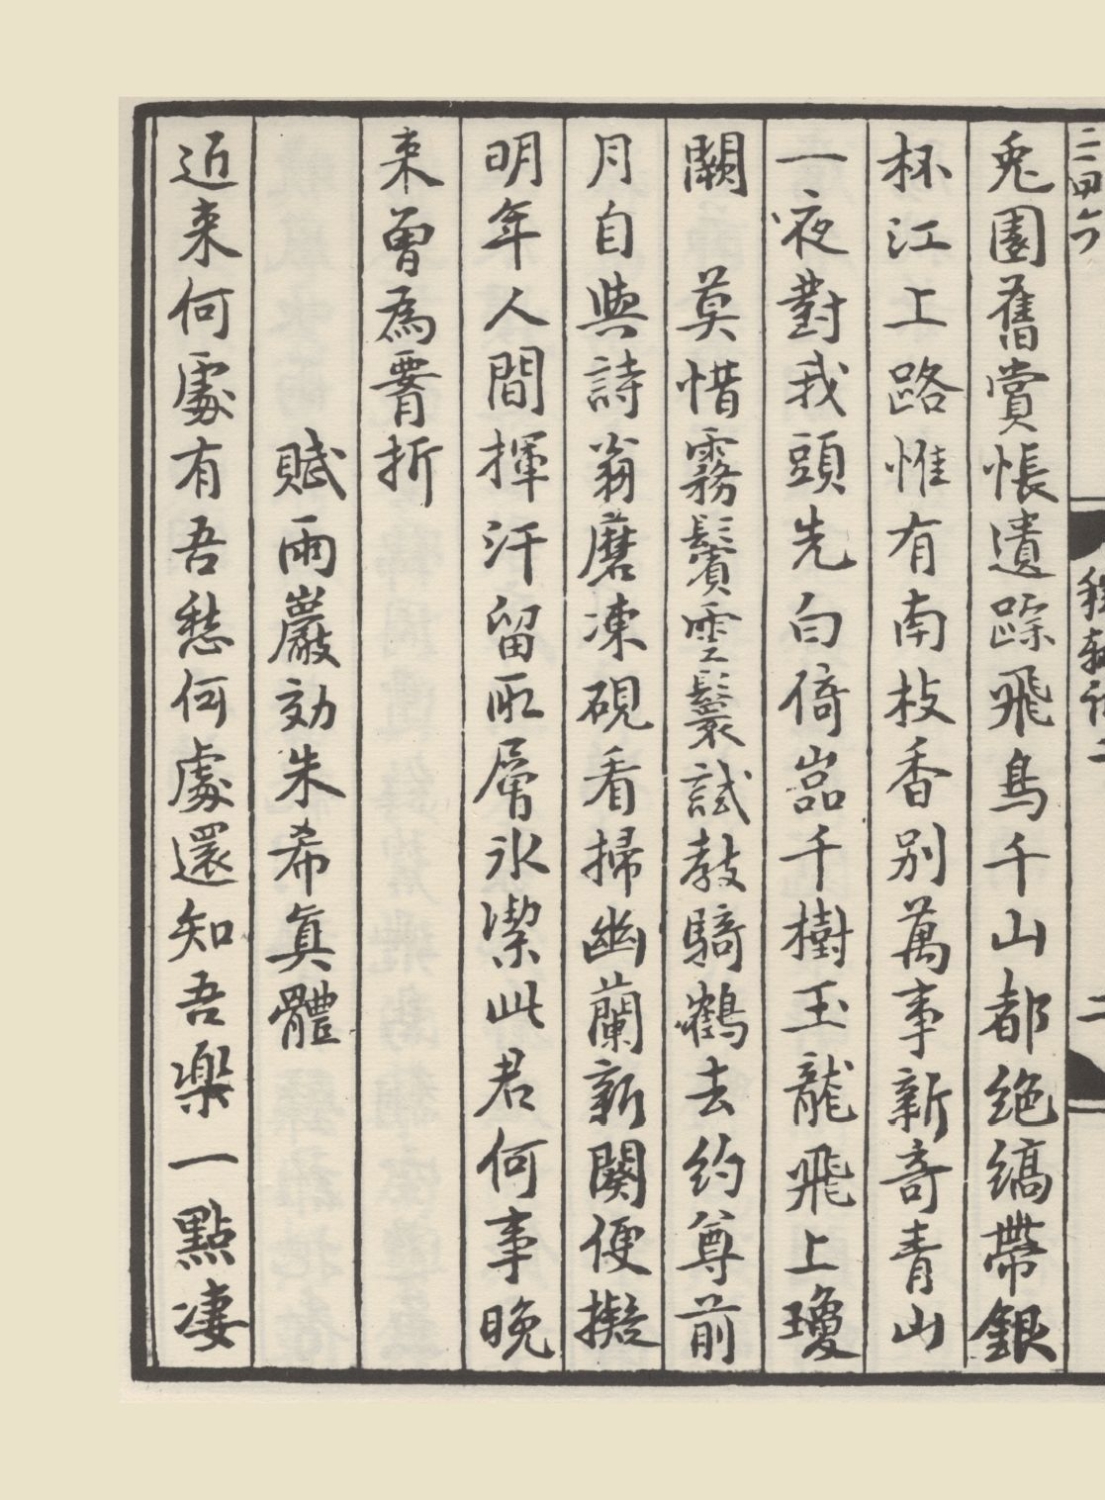 二四六 稼軒詞二 二
兎園舊賞悵遺踪飛鳥千山都絶縞帶銀
杯江上路惟有南枝香别萬事新奇青山
一夜對我頭先白倚嵓千樹玉龍飛上瓊
闕 莫惜霧鬢雲鬟試教騎鶴去约尊前
月自與詩翁磨凍硯看掃幽蘭新闋便擬
明年人間揮汗留取層氷潔此君何事晚
来曾為𦝫折
賦雨巖効朱希真體
近来何處有吾愁何處還知吾楽一點凄